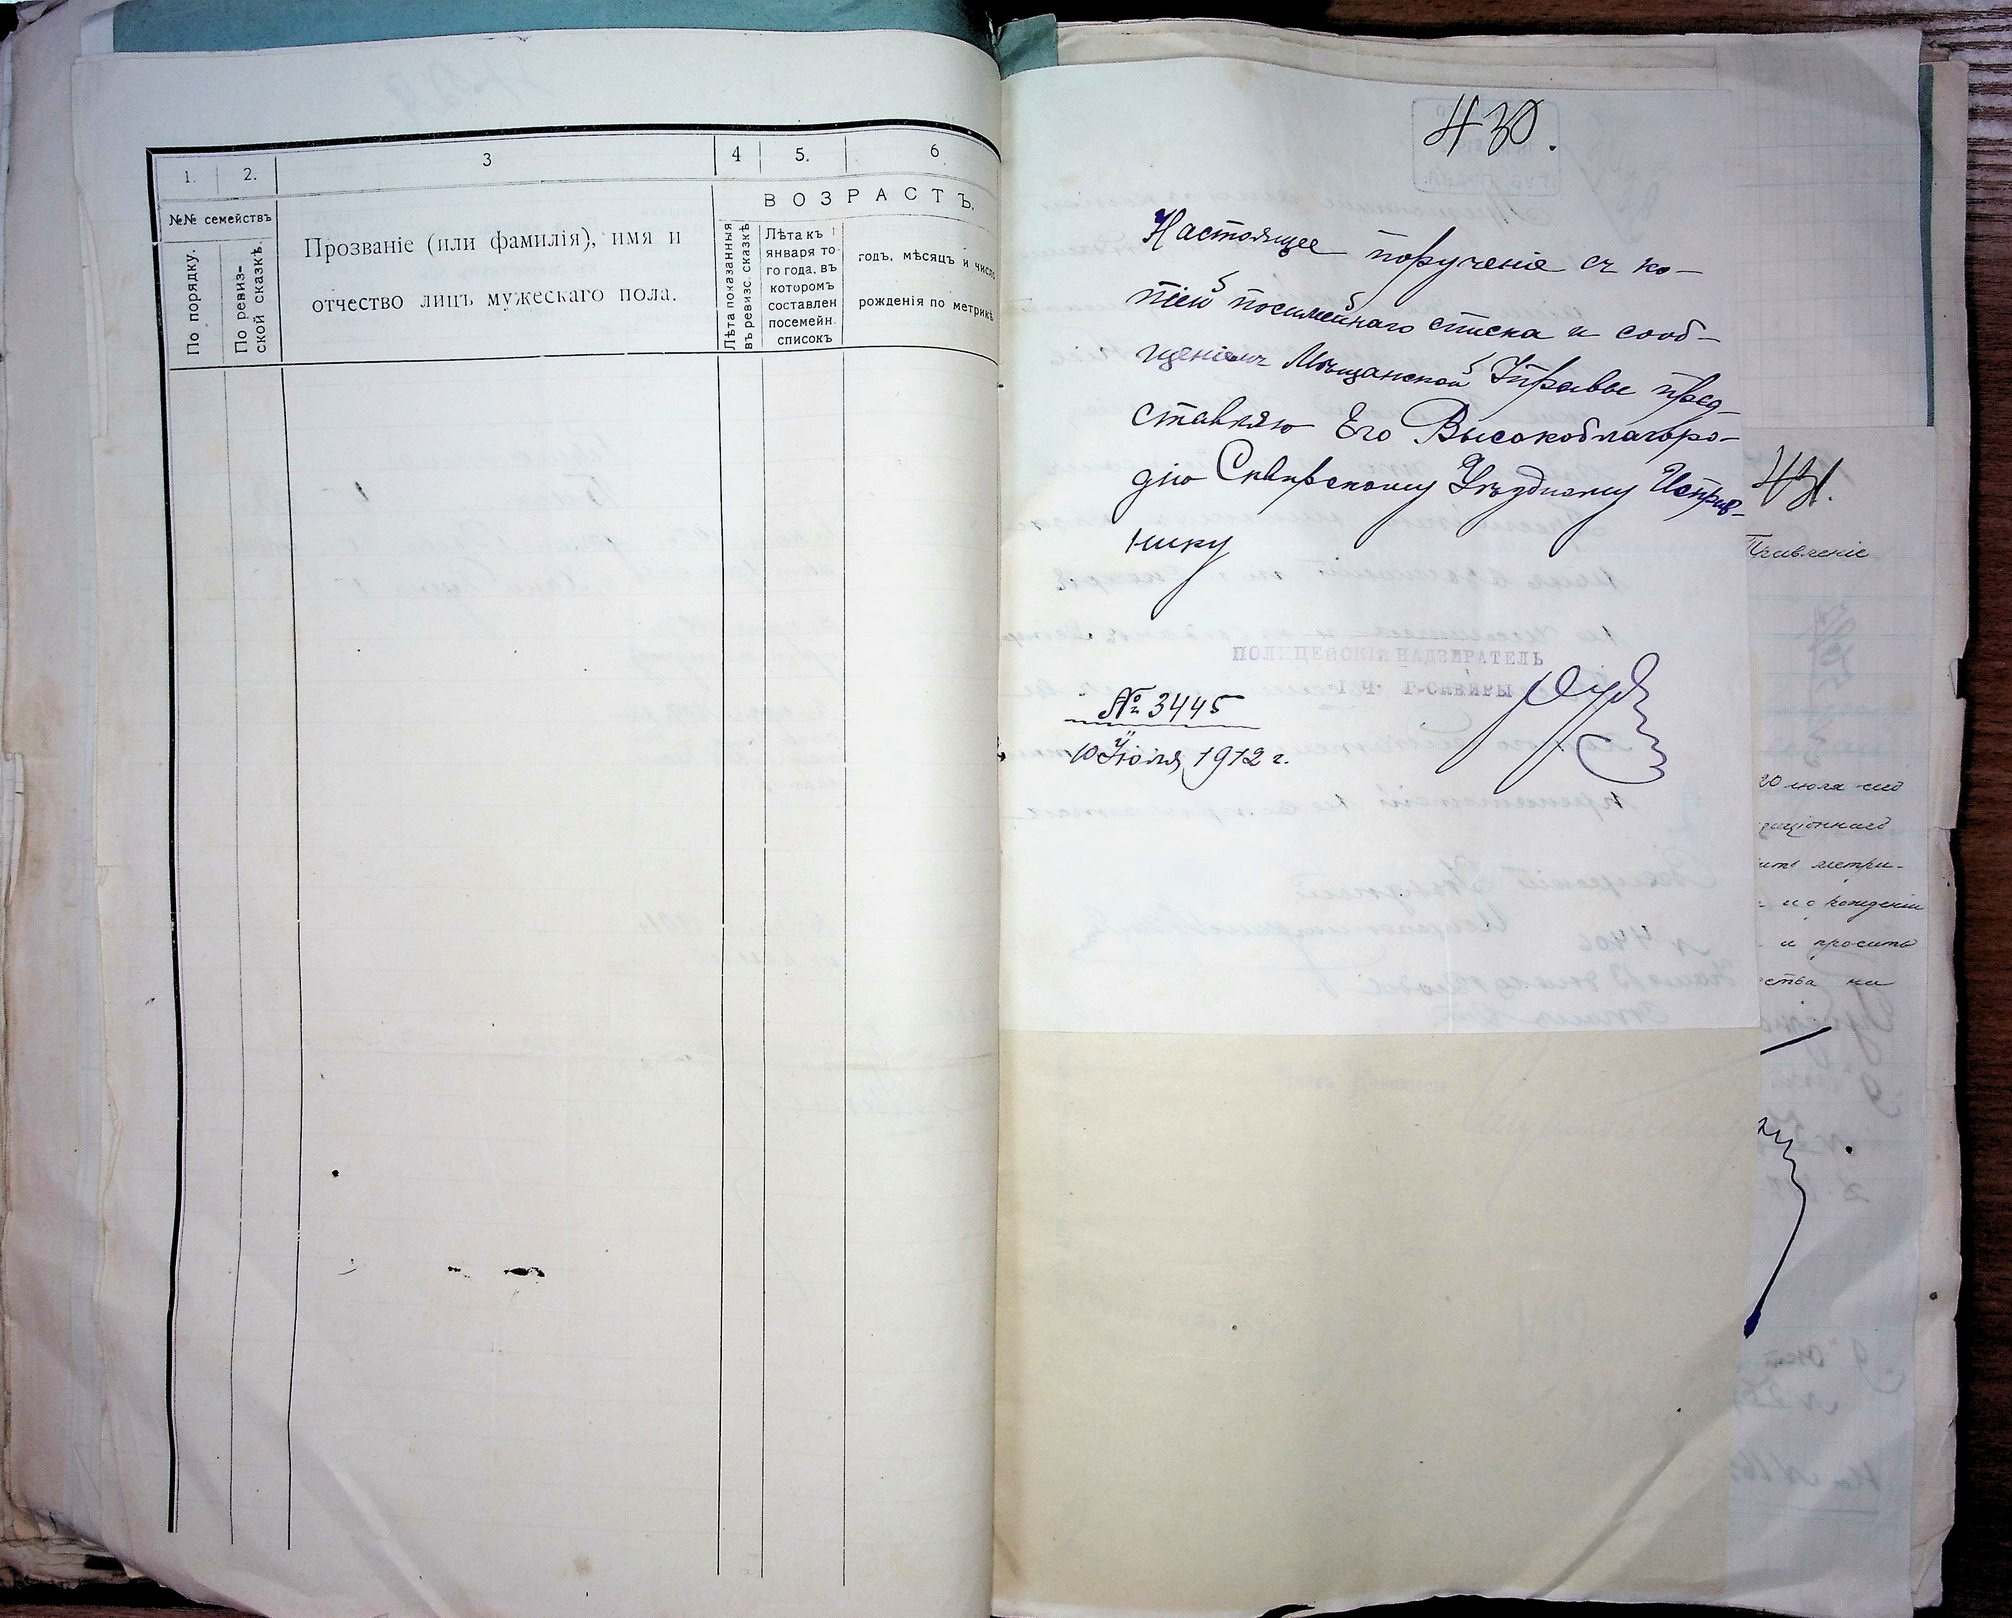 1. 2. 3 4 5. 6.
№№ семействъ
По порядку.
По ревиз-
ской сказкѣ.
Прозваніе (или фамилія), имя и
отчество лицъ мужескаго пола.
ВОЗРАСТЪ.
Лѣта показанныя
въ ревизс. сказкѣ
Лѣта къ 1
января то-
го года, въ
которомъ
составлен
посемейн.
списокъ
годъ, мѣсяцъ и число
рожденія по метрикѣ
430.
Настоящее порученіе съ ко-
піей посимейнаго списка и сооб-
щеніемъ Мѣщанской Управы пред-
ставляю Его Высокоблагоро-
дію Сквирскому Уѣздному Исправ-
нику
ПОЛИЦЕЙСКІЙ НАДЗИРАТЕЛЬ
1 Ч. Г. СКВИРЫ
№ 3445
10 Іюля 1912 г.
431.
Правленіе
20 июля сего
ить метри-
и о рожденіи
и просить
ства на